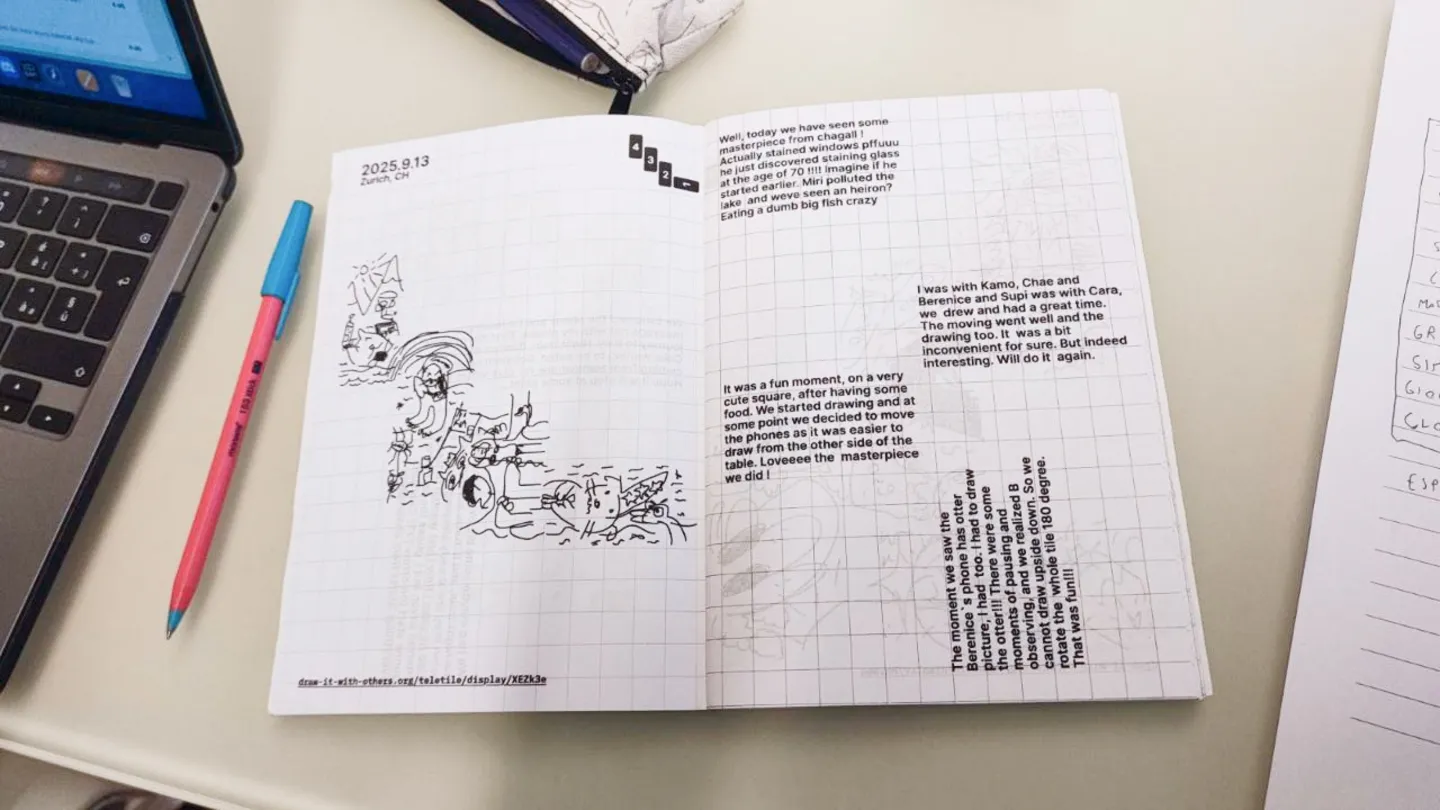 2025.9.13
Zurich, CH
4
3
2
1
draw-it-with-others.org/teletile/display/XEZk3e
Well, today we have seen some
masterpiece from chagall !
Actually stained windows pffuuu
he just discovered staining glass
at the age of 70 !!!! Imagine if he
started earlier. Miri polluted the
lake and weve seen an heiron?
Eating a dumb big fish crazy
I was with Kamo, Chae and
Berenice and Supi was with Cara,
we drew and had a great time.
The moving went well and the
drawing too. It was a bit
inconvenient for sure. But indeed
interesting. Will do it again.
It was a fun moment, on a very
cute square, after having some
food. We started drawing and at
some point we decided to move
the phones as it was easier to
draw from the other side of the
table. Loveeee the masterpiece
we did !
The moment we saw the
Berenice`s phone has otter
picture, I had too. I had to draw
the otter!!! There were some
moments of pausing and
observing, and we realized B
cannot draw upside down. So we
rotate the whole tile 180 degree.
That was fun!!!
ESP